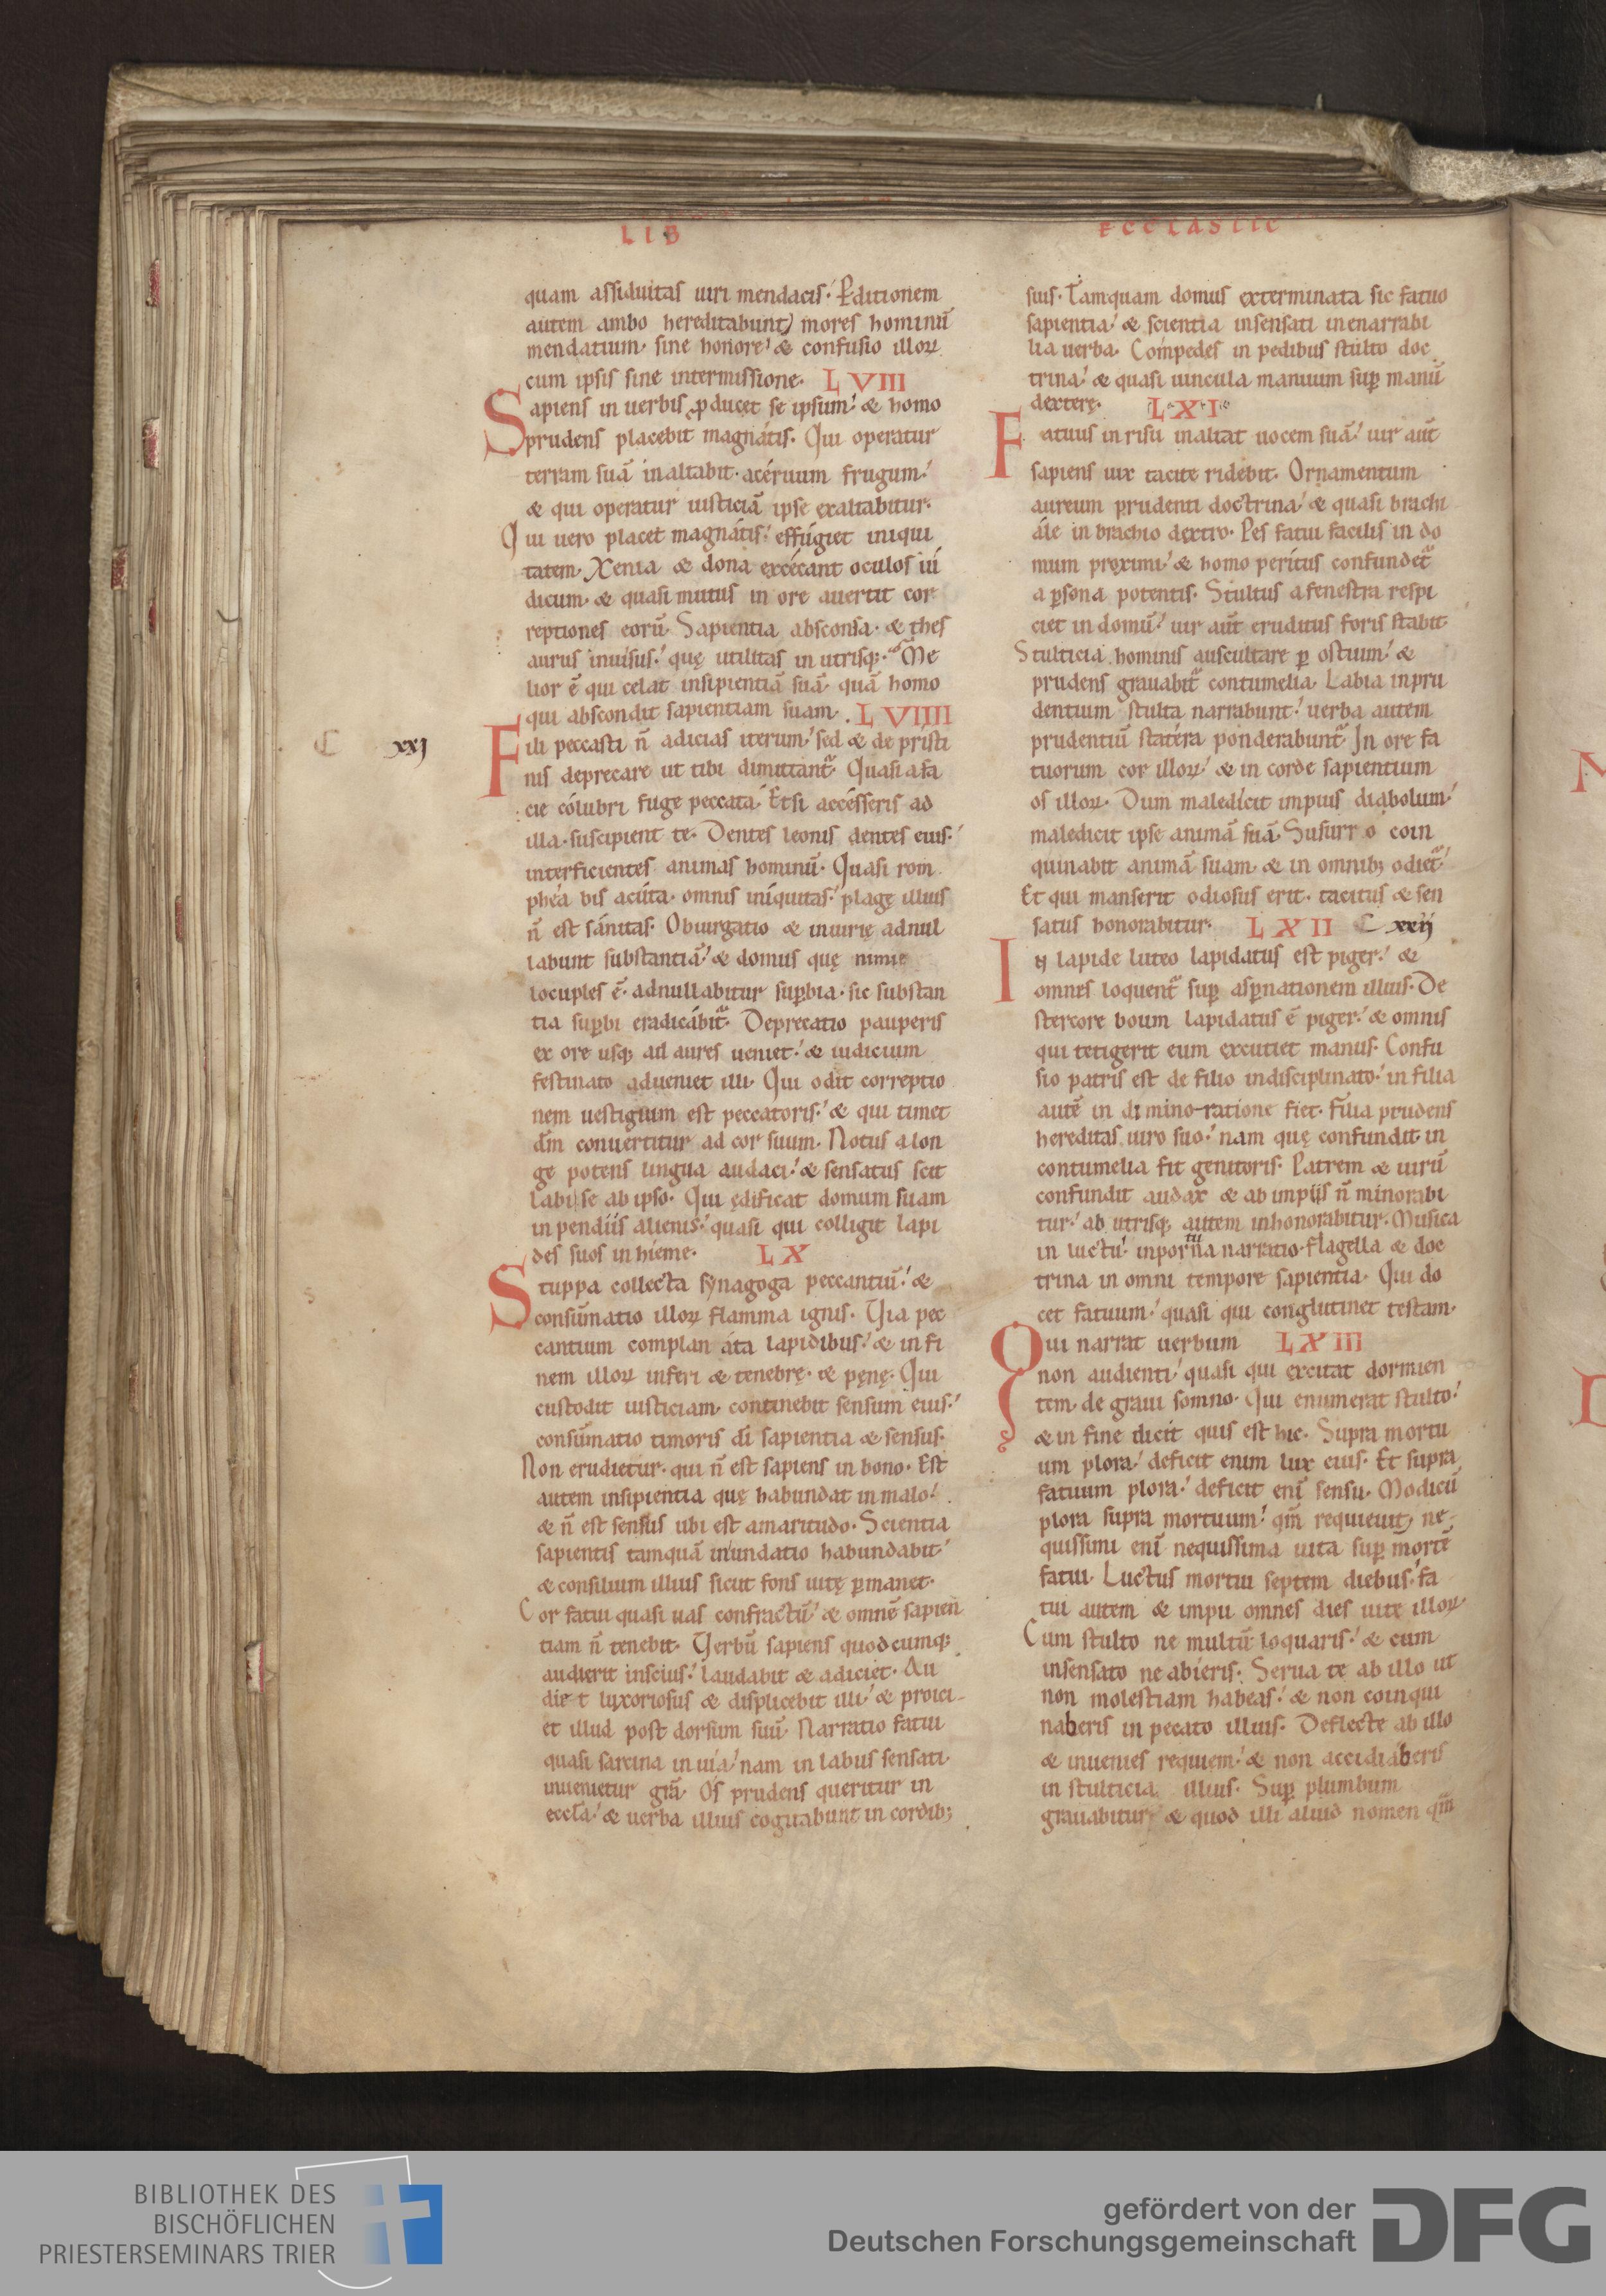 LIB
ECCLASTIC
quam assiduitas uiri mendacis. Ꝑditionem
autem ambo hereditabunt; mores hominū
mendatium. sine honore. & confusio illoꝝ
cum ipsis sine intermissione. LVIII
Sapiens in uerbis ꝓducet se ipsum. & homo
prudens placebit magnátis. Qui operatur
terram suā inaltabit. acéruum frugum.
& qui operatur iusticiā ipse exaltabitur.
Qui uero placet magnátis. effúgiet iniqui
tatem. Xenia & dona excécant oculos iu
dicum. & quasi mutus in ore auertit cor
reptiones eorū. Sapientia absconsa. & thes
aurus inuisus. quę utilitas in utrisqꝫ. Me
lior ē qui celat insipientiā suā. quā homo
qui abscondit sapientiam suam. LVIIII
C xxj
Fili peccasti n̄ adicias iterum. sed & de pristi
nis deprecare ut tibi dimittant᷑. Quasi a fa
cie cólubri fuge peccata. Et si accésseris ad
illa. suscipient te. Dentes leonis dentes eius.
interficientes animas hominū. Quasi rom
phéa bis acúta. omnis iníquitas. plagę illius
n̄ est sánitas. Obiurgatio & iniurię adnul
labunt substantiā. & domus quę nimis
locuples ē. adnullabitur suꝑbia. sic substan
tia suꝑbi eradicábit᷑. Deprecatio pauperis
ex ore usqꝫ ad aures ueniet. & iudicium
festinato adueniet illi. Qui odit correptio
nem uestigium est peccatoris. & qui timet
dm̄ conuertitur ad cor suum. Notus a lon
ge potens lingua audaci. & sensatus scit
labi se ab ipso. Qui ędificat domum suam
inpendiis alienis. quasi qui colligit lapi
des suos in hieme. LX
Stuppa collecta synagoga peccantiū. &
consūmatio illoꝝ flamma ignis. Via pec
cantium complan áta lapidibus. & in fi
nem illoꝝ inferi & tenebrę. & pęnę. Qui
custodit iusticiam. continebit sensum eius.
consūmatio timoris di̅ sapientia & sensus.
Non erudietur. qui n̄ est sapiens in bono. Est
autem insipientia quę habundat in malo.
& n̄ est sensus ubi est amaritudo. Scientia
sapientis tamquā inundatio habundabit
& consilium illius sicut fons uitę ꝑmanet.
Cor fatui quasi uas confractū. & omnē sapien
tiam n̄ tenebit. Verbū sapiens quodcumqꝫ
audierit inscius. laudabit & adiciet. Au
die t luxoriosus & displicebit illi. & proici
et illud post dorsum suū. Narratio fatui
quasi sarcina in uia. nam in labiis sensati
inuenietur gr̄a. Os prudens queritur in
eccl̄a. & uerba illius cogitabunt in cordibꝫ
suis. Tamquam domus exterminata sic fatuo
sapientia. & scientia insensati inenarrabi
lia uerba. Cómpedes in pedibus stulto doc
trina. & quasi uincula manuum suꝑ manū
dexterę. LXI
Fatuus in risu inaltat uocem suā. uir aūt
sapiens uix tacite ridebit. Ornamentum
aureum prudenti doctrina. & quasi brachi
ále in brachio dextro. Pes fatui facilis in do
mum proximi. & homo perítus confundet᷑
a ꝑsona potentis. Stultus a fenestra respi
ciet in domū. uir aūt eruditus foris stabit
Stulticia hominis auscultare ꝑ ostium. &
prudens grauabit᷑ contumelia. Labia inpru
dentium stulta narrabunt. uerba autem
prudentiū statéra ponderabunt᷑. In ore fa
tuorum cor illoꝝ. & in corde sapientium
os illoꝝ. Dum maledicit impius diabolum.
maledicit ipse animā suā. Susurr o coin
quinabit animā suam. & in omnibꝫ odiet᷑.
Et qui manserit odiosus erit. tacitus & sen
satus honorabitur. LXII C xxij
In lapide luteo lapidatus est piger. &
omnes loquent᷑ suꝑ asꝑnationem illius. De
stercore boum lapidatus ē piger. & omnis
qui tetigerit eum excutiet manus. Confu
sio patris est de filio indisciplinato. in filia
autē in di mino-ratione fiet. Filia prudens
hereditas uiro suo. nam quę confundit. in
contumelia fit genitoris. Patrem & uirū
confundit audax & ab impiis n̄ minorabi
tur. ab utrisqꝫ autem inhonorabitur. Musica
in luctu. inportuna narratio. Flagella & doc
trina in omni tempore sapientia. Qui do
cet fatuum. quasi qui conglutinet testam.
Qui narrat uerbum LXIII
non audienti. quasi qui excitat dormien
tem. de graui somno. Qui enumerat stulto.
& in fine dicit quis est hic. Supra mortu
um plora. deficit enim lux eius. Et supra
fatuum plora. deficit enī sensu. Modicū
plora supra mortuum. qm̄ requieuit; ne
quissimi enī nequissima uita suꝑ mortē
fatui. Luctus mortui septem diebus. fa
tui autem & impii omnes dies uitę illoꝝ.
Cum stulto ne multū loquaris. & cum
insensato ne abieris. Serua te ab illo ut
non molestiam habeas. & non coinqui
naberis in pecato illius. Deflecte ab illo
& inuenies requiem. & non accidiáberis
in stulticia illius. Suꝑ plumbum
grauabitur; & quod illi aliud nomen qm̄
BIBLIOTHEK DES
BISCHÖFLICHEN
PRIESTERSEMINARS TRIER
gefördert von der
Deutschen Forschungsgemeinschaft
DFG